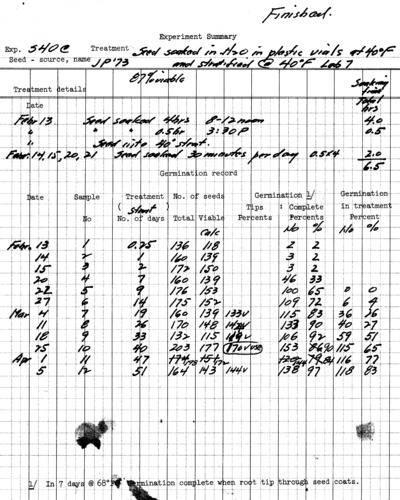 Finished.
Experiment Summary
Exp. 540C Treatment Seed soaked in H2O in plastic vials at 40°F
Seed - source, name JP '73 and stratified @ 40°F Lab 7
87% viable
Soaking time
Treatment details Total hrs
Date
Febr 13 Seed soaked 4hrs 8-12 noon 4.0
" " " 0.5hr 3:30P 0.5
" Seed into 40° strat.
Febr. 14, 15, 20, 21 Seed soaked 30 minutes per day 0.5x4 2.0
6.5
Germination record
Date Sample Treatment No. of seeds Germination 1/ Germination
(Strat) Tips : Complete in treatment
No No. of days Total Viable Percents Percents Percent
Calc No % No %
Febr. 13 1 0.25 136 118 2 2
14 2 1 160 139 3 2
15 3 2 172 150 3 2
20 4 7 160 139 46 33
22 5 9 176 153 100 65 0 0
27 6 14 175 152 109 72 6 4
Mar 4 7 19 160 139 133v 115 83 36 26
11 8 26 170 148 133 90 40 27
18 9 33 132 115 106 92 59 51
25 10 40 203 177 153 86 90 115 65
Apr 1 11 47 116 77
5 12 51 164 143 144v 138 97 118 83
1/ In 7 days @ 68°F. Germination complete when root tip through seed coats.